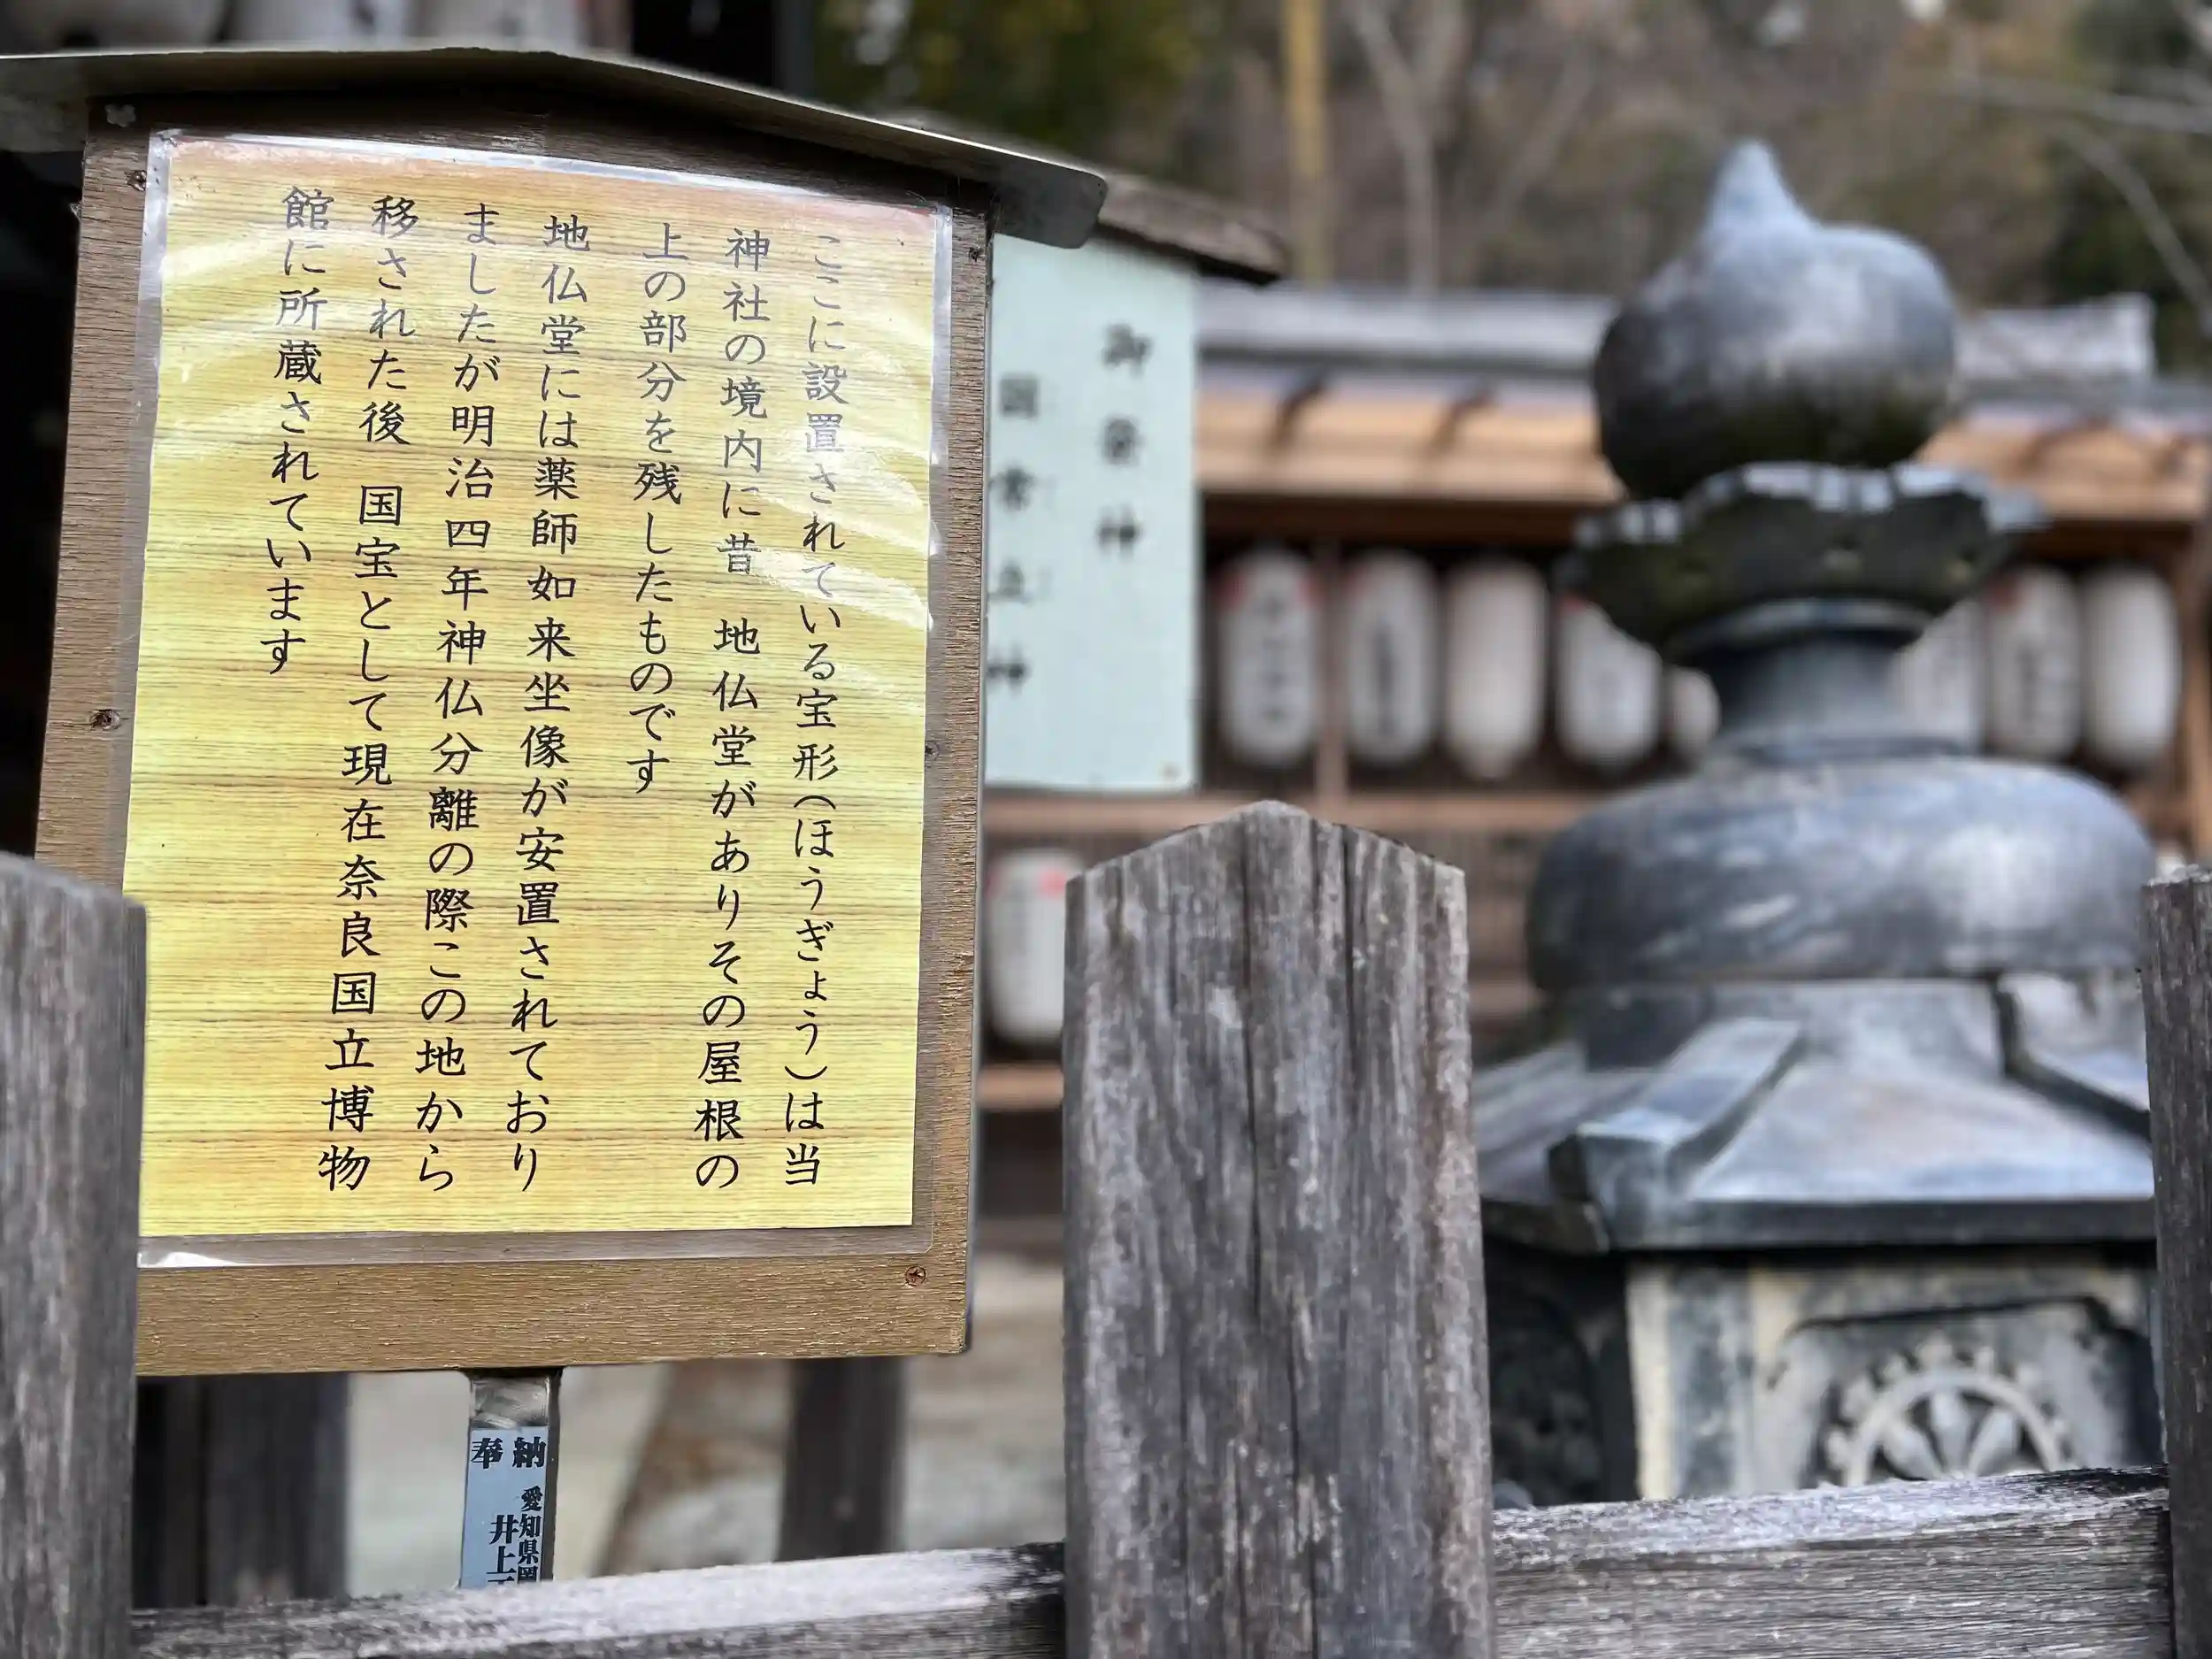 ここに設置されている宝形(ほうぎょう)は当
神社の境内に昔 地仏堂がありその屋根の
上の部分を残したものです
地仏堂には薬師如来坐像が安置されており
ましたが明治四年神仏分離の際この地から
移された後 国宝として現在奈良国立博物
館に所蔵されています
御祭神
国常立神
奉納
愛知県岡
井上